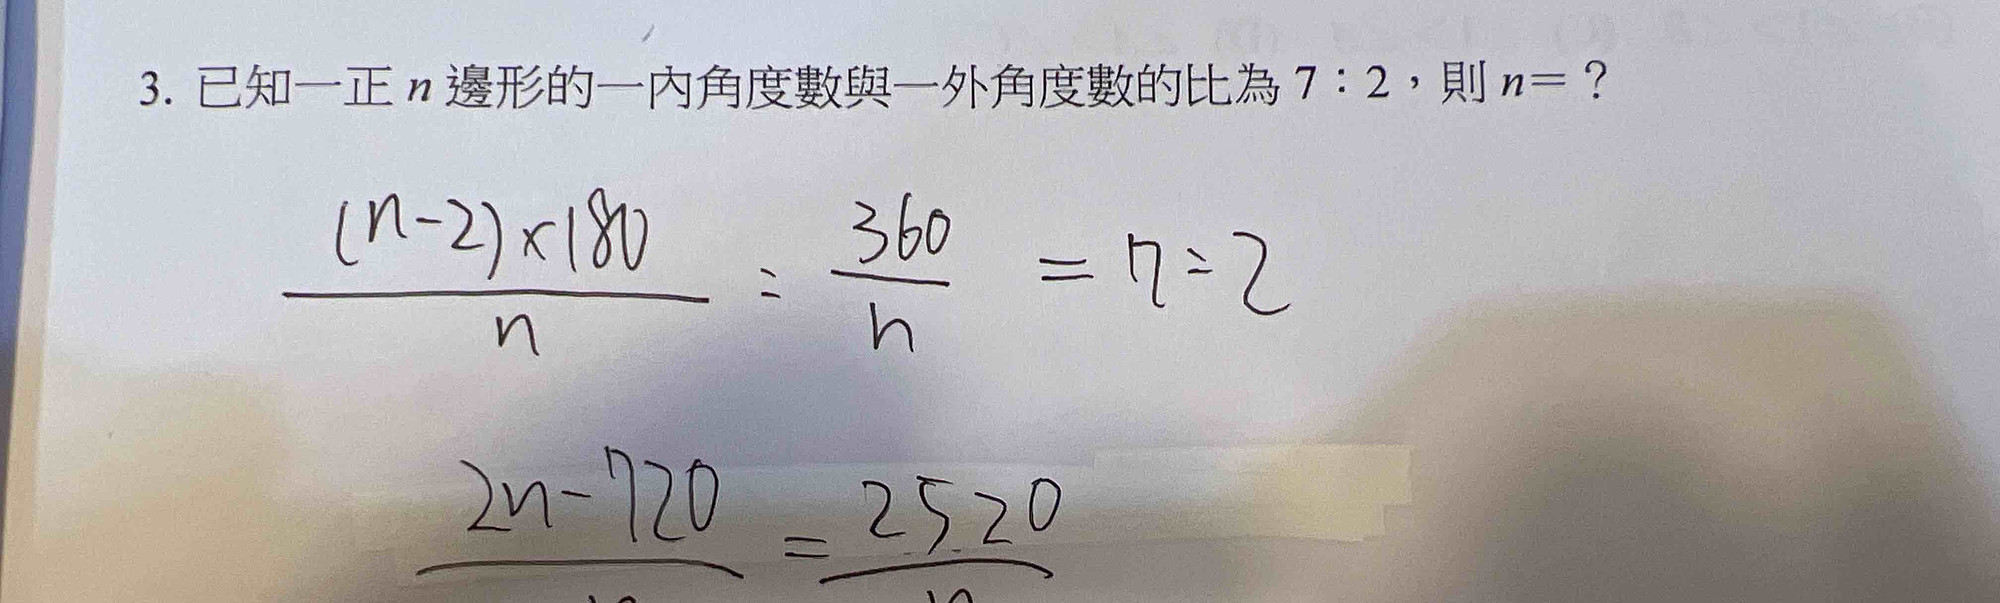 3. 已知一正 n 邊形的一內角度數與一外角度數的比為 7：2，則 n=？
(n-2)×180 / n : 360 / n = 7:2
2n-720 / n = 2520 / n